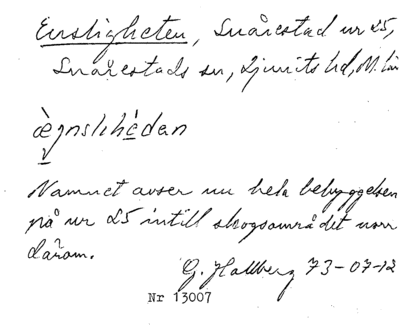 Ensligheten, Snårestad nr 25,
Snårestads sn, Ljunits hd, M. län
ægnslihèdan
Namnet avser nu hela bebyggelsen
på nr 25 intill skogsområdet norr
därom.
G. Hallberg 73-07-12
Nr 13007